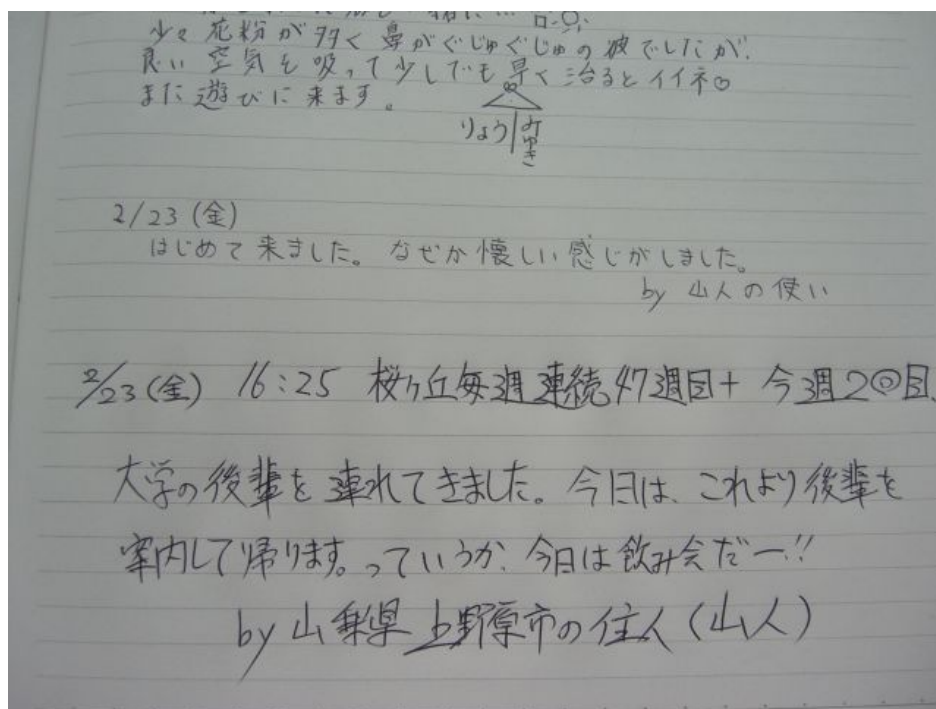 少々花粉が多く鼻がぐじゅぐじゅの彼でしたが、
良い空気を吸って少しでも早く治るとイイネ♡
また遊びに来ます。
りょう|みゆき
2/23(金)
はじめて来ました。なぜか懐しい感じがしました。
by 山人の使い
2/23(金) 16:25 桜ヶ丘毎週連続47週目+今週2◎目、
大学の後輩を連れてきました。今日は、これより後輩を
案内して帰ります。っていうか、今日は飲み会だー!!
by 山梨県上野原市の住人(山人)